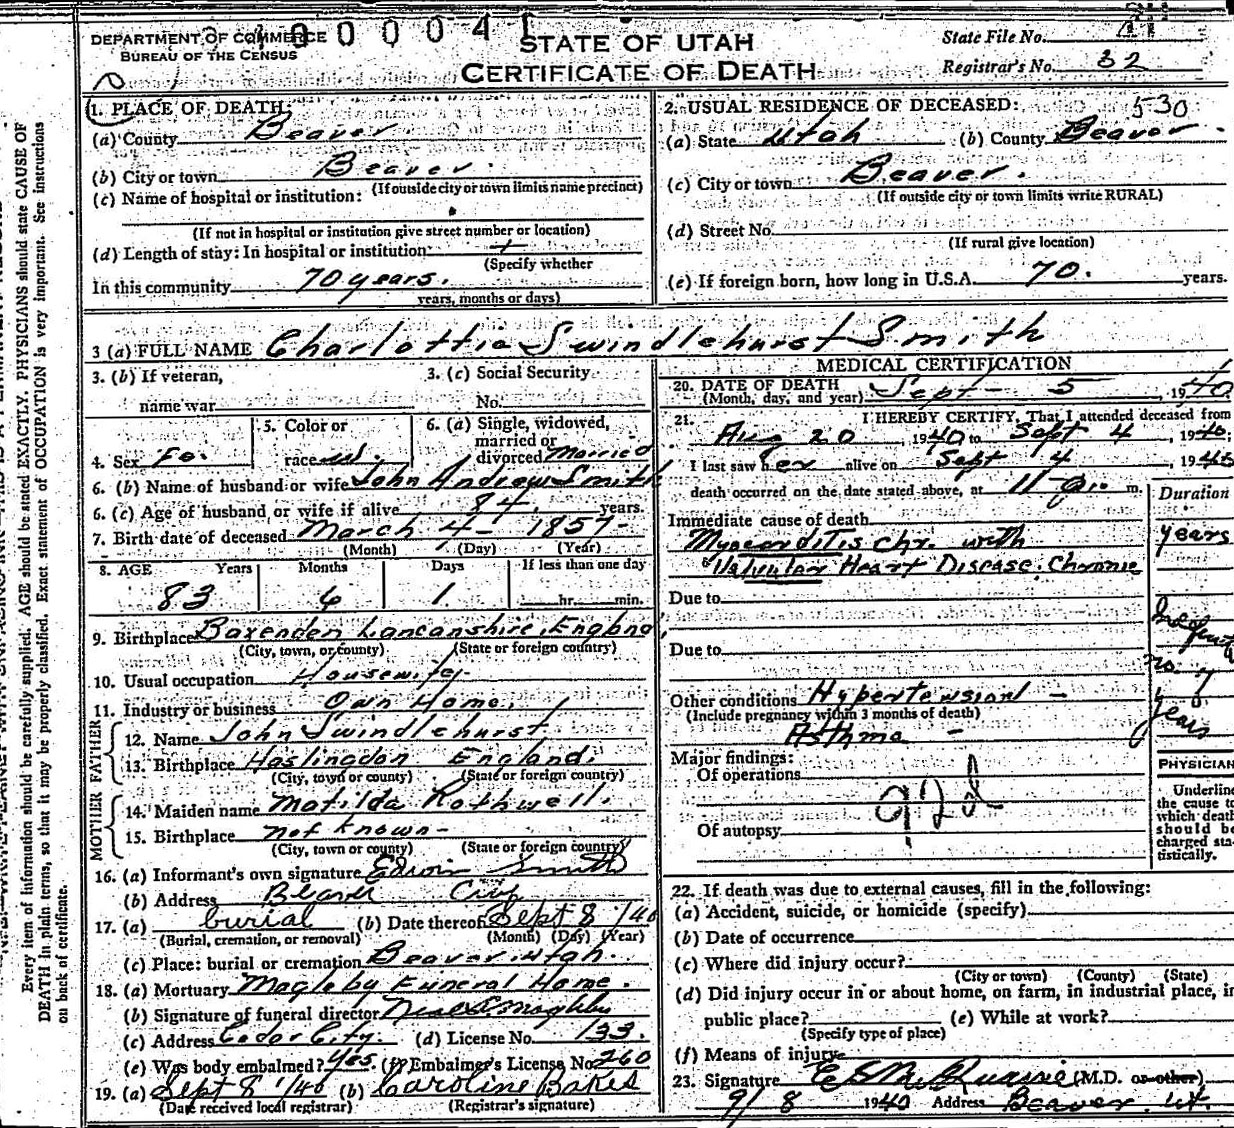 DEPARTMENT OF COMMERCE
BUREAU OF THE CENSUS
0 0 0 0 4 1
STATE OF UTAH
CERTIFICATE OF DEATH
State File No. 41
Registrar's No. 32
1. PLACE OF DEATH:
(a) County Beaver
(b) City or town Beaver.
(If outside city or town limits name precinct)
(c) Name of hospital or institution:
(If not in hospital or institution give street number or location)
(d) Length of stay: In hospital or institution
(Specify whether
In this community 70 years.
years, months or days)
2. USUAL RESIDENCE OF DECEASED: 530
(a) State Utah (b) County Beaver.
(c) City or town Beaver.
(If outside city or town limits write RURAL)
(d) Street No.
(If rural give location)
(e) If foreign born, how long in U.S.A. 70. years.
3 (a) FULL NAME Charlottie Swindlehurst Smith
3. (b) If veteran,
name war
3. (c) Social Security
No.
4. Sex Fe.
5. Color or
race w.
6. (a) Single, widowed,
married or
divorced Married
6. (b) Name of husband or wife John Andrew Smith
6. (c) Age of husband or wife if alive 84. years.
7. Birth date of deceased March 4 - 1857
(Month) (Day) (Year)
8. AGE Years Months Days If less than one day
83 6 1 hr. min.
9. Birthplace Baxenden Lancanshire, England
(City, town, or county) (State or foreign country)
10. Usual occupation Housewife
11. Industry or business Own Home.
FATHER
12. Name John Swindlehurst
13. Birthplace Haslingdon England.
(City, town or county) (State or foreign country)
MOTHER
14. Maiden name Matilda Rothwell.
15. Birthplace not known-
(City, town or county) (State or foreign country)
16. (a) Informant's own signature Edwin Smith
(b) Address Beaver City
17. (a) burial (b) Date thereof Sept 8 /40
(Burial, cremation, or removal) (Month) (Day) (Year)
(c) Place: burial or cremation Beaver Utah.
18. (a) Mortuary Magleby Funeral Home.
(b) Signature of funeral director
(c) Address Cedar City. (d) License No. 133.
(e) Was body embalmed? Yes. (f) Embalmer's License No. 260
19. (a) Sept 8 '/40 (b) Caroline Bakes
(Date received local registrar) (Registrar's signature)
MEDICAL CERTIFICATION
20. DATE OF DEATH Sept - 5, 1940
(Month, day, and year)
21. I HEREBY CERTIFY, That I attended deceased from
Aug 20, 1940 to Sept 4, 1940;
I last saw her alive on Sept 4, 1940
death occurred on the date stated above, at 11 m.
Duration
Immediate cause of death
Myocarditis chr. with years
Valvular Heart Disease. Chronic
Due to
Due to
no. of
years
Other conditions Hypertension -
(Include pregnancy within 3 months of death)
Asthma -
Major findings:
Of operations
92d
Of autopsy
PHYSICIAN
Underline
the cause to
which death
should be
charged sta-
tistically.
22. If death was due to external causes, fill in the following:
(a) Accident, suicide, or homicide (specify)
(b) Date of occurrence
(c) Where did injury occur?
(City or town) (County) (State)
(d) Did injury occur in or about home, on farm, in industrial place, in
public place? (e) While at work?
(Specify type of place)
(f) Means of injury
23. Signature (M.D. or other)
9/8 1940 Address Beaver. Ut.
Every item of information should be carefully supplied. AGE should be stated EXACTLY. PHYSICIANS should state CAUSE OF
DEATH in plain terms, so that it may be properly classified. Exact statement of OCCUPATION is very important. See instructions
on back of certificate.